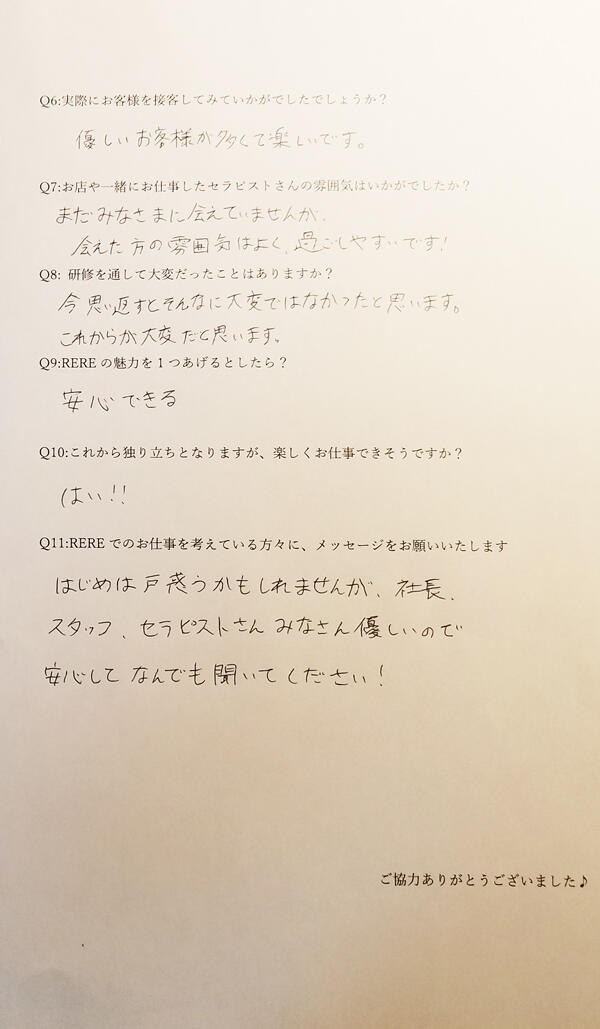 Q6:実際にお客様を接客してみていかがでしたでしょうか？
優しいお客様が多くて楽しいです。
Q7:お店や一緒にお仕事したセラピストさんの雰囲気はいかがでしたか？
まだみなさまに会えていませんが、
会えた方の雰囲気はよく、過ごしやすいです!
Q8: 研修を通して大変だったことはありますか？
今思い返すとそんなに大変ではなかったと思います。
これからが大変だと思います。
Q9:RERE の魅力を 1 つあげるとしたら？
安心できる
Q10:これから独り立ちとなりますが、楽しくお仕事できそうですか？
はい!!
Q11:RERE でのお仕事を考えている方々に、メッセージをお願いいたします
はじめは戸惑うかもしれませんが、社長、
スタッフ、セラピストさんみなさん優しいので
安心してなんでも聞いてください!
ご協力ありがとうございました♪